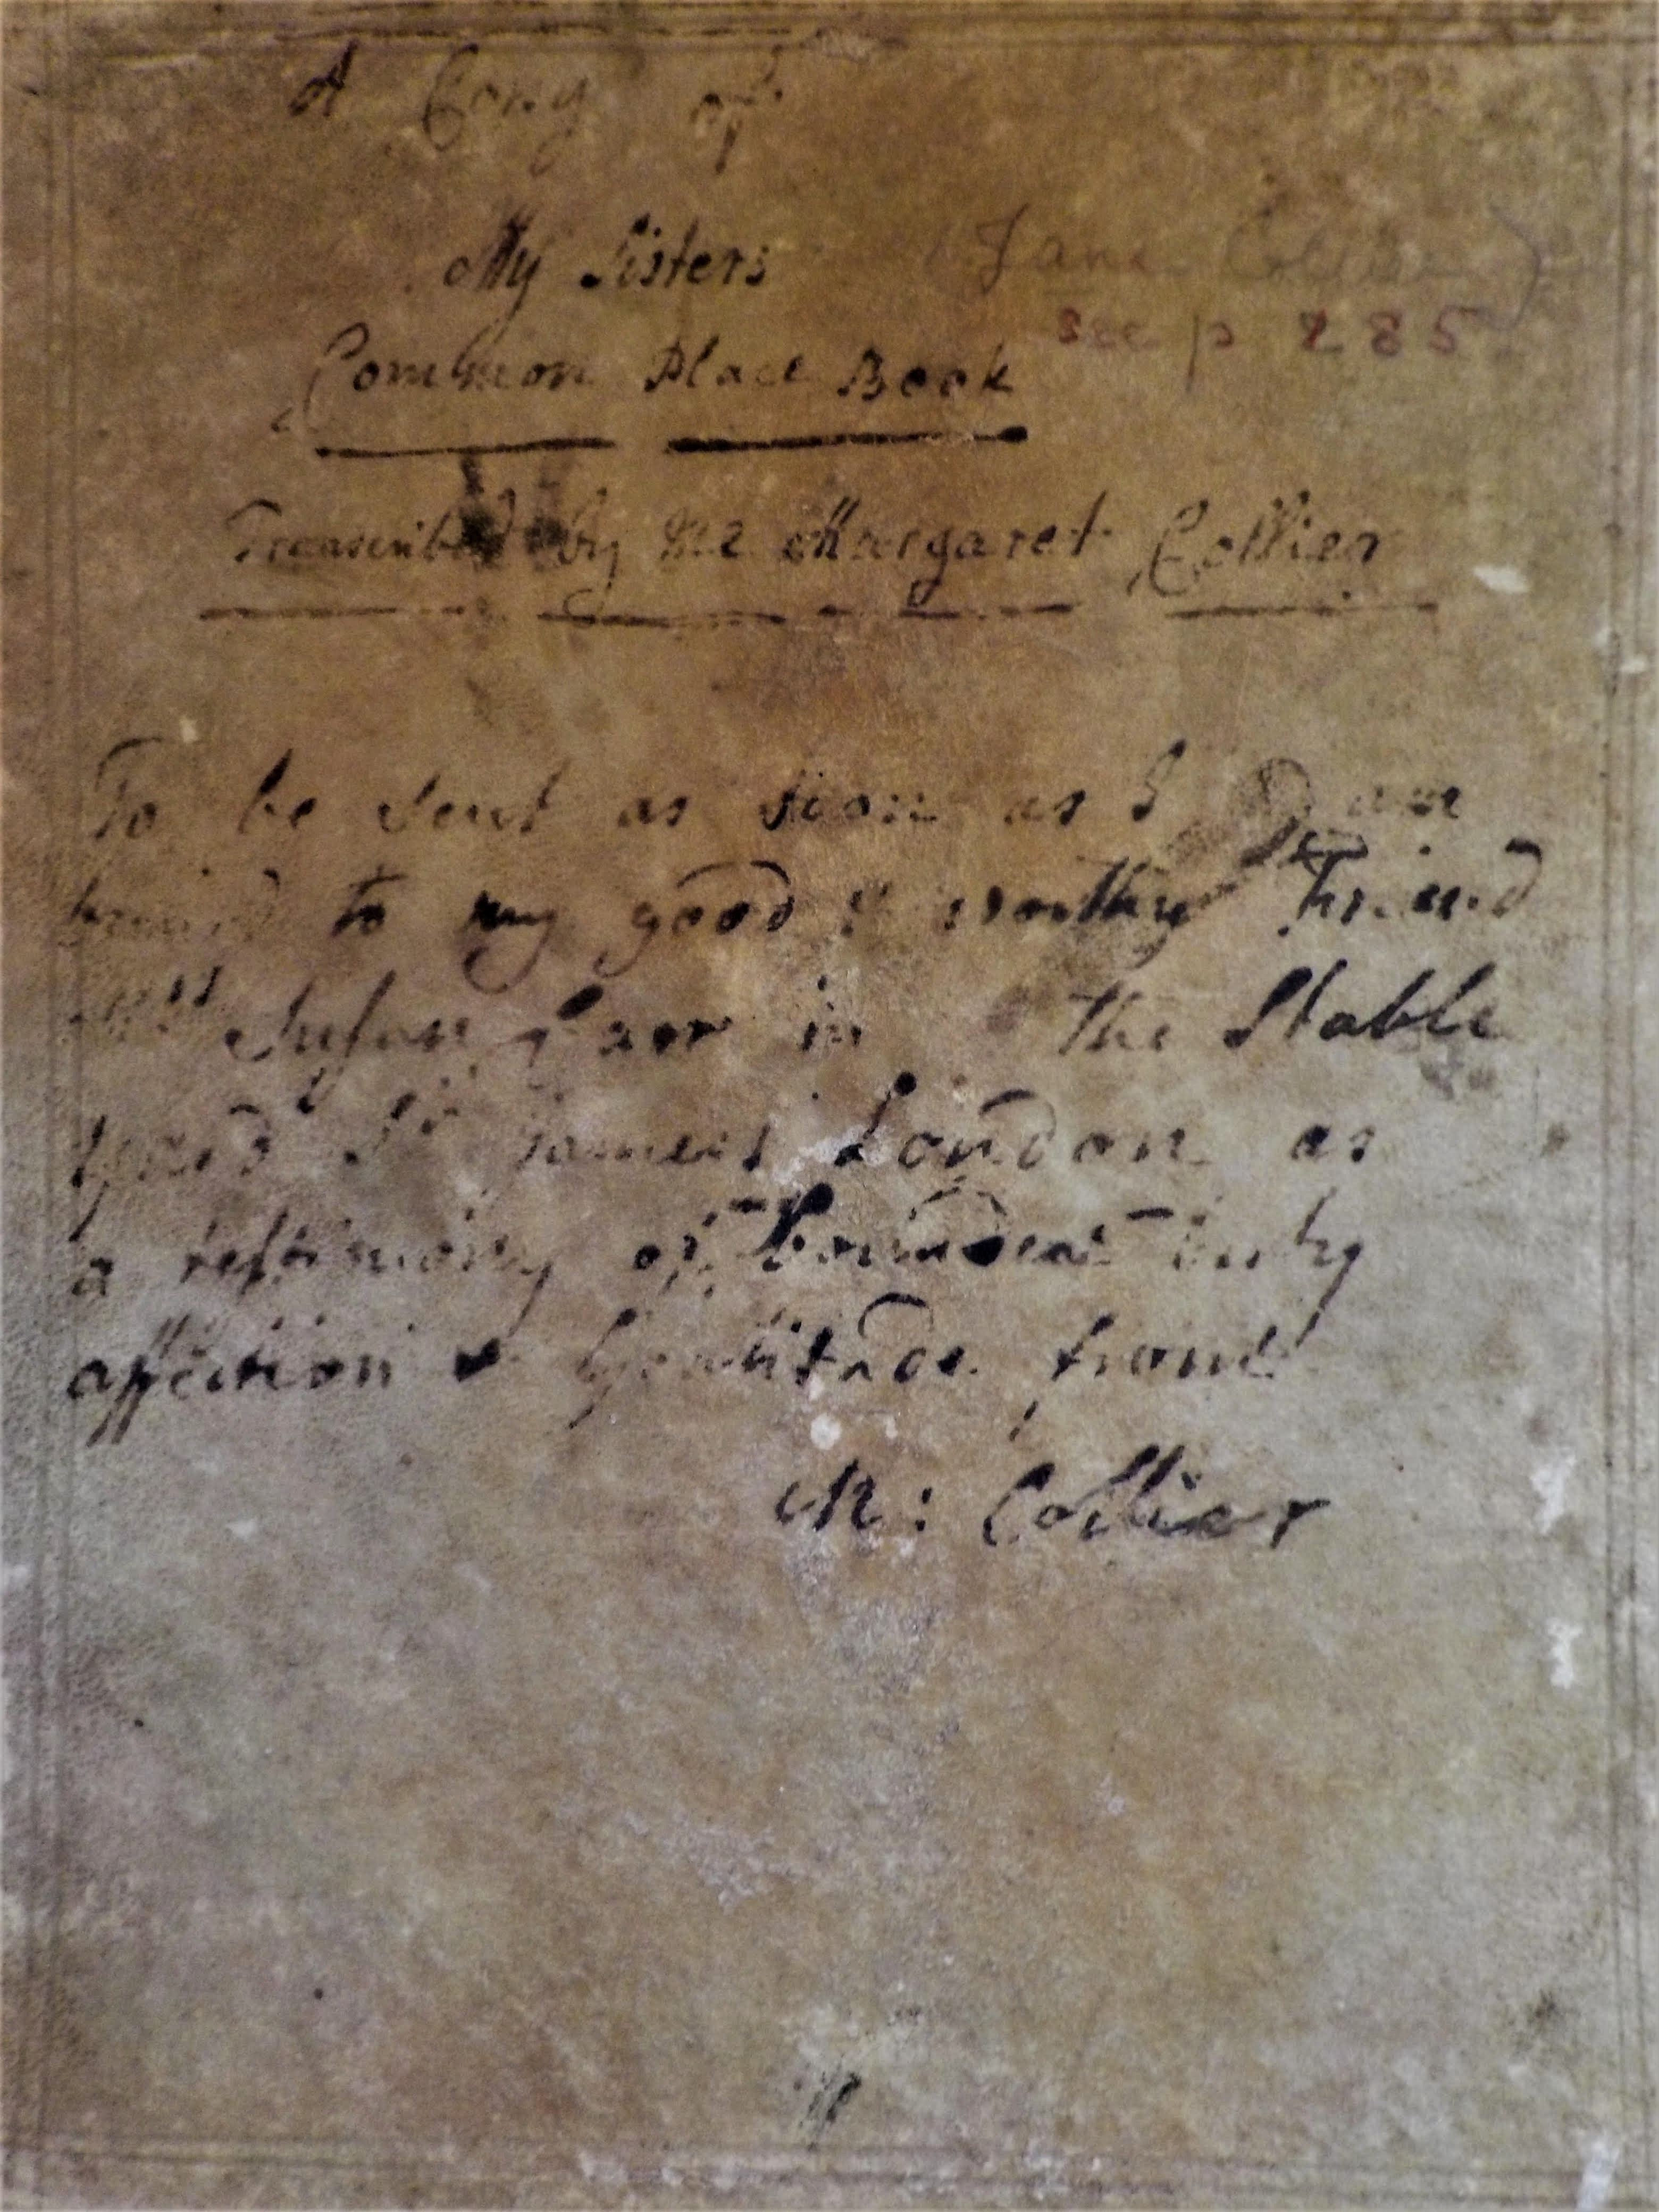 A Copy of
My Sisters (Jane Collier)
Common Place Book see p 285
Transcribed by me Margaret Collier
To be sent as soon as I am
buried to my good & worthy Friend
Mrs Susan in the Stable
yard St James's London as
a testimony of bounden duty
affection & Gratitude from
M: Collier